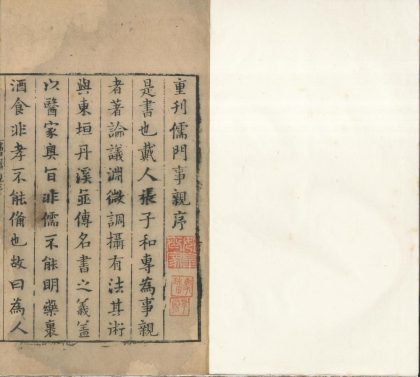 重刊儒門事親序
是書也戴人張子和專為事親
者著論議淵微調攝有法其術
與東垣丹溪並傳名書之義蓋
以醫家奧旨非儒不能明藥裹
酒食非孝不能備也故曰為人